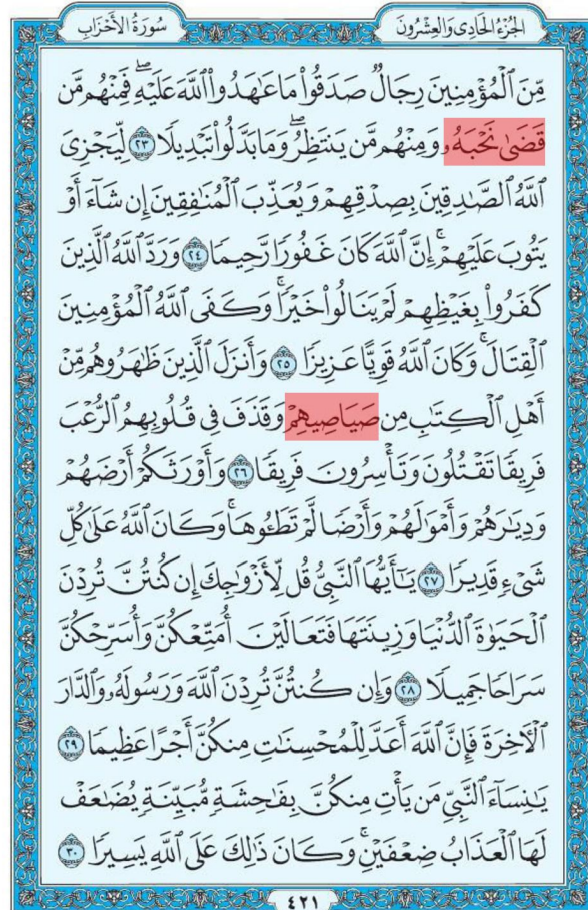 سُورَةُ الأَحْزَابِ
الجُزْءُ الحَادِي وَالعِشْرُونَ
مِّنَ ٱلْمُؤْمِنِينَ رِجَالٌ صَدَقُوا۟ مَا عَـٰهَدُوا۟ ٱللَّهَ عَلَيْهِ ۖ فَمِنْهُم مَّن
قَضَىٰ نَحْبَهُۥ وَمِنْهُم مَّن يَنتَظِرُ ۖ وَمَا بَدَّلُوا۟ تَبْدِيلًا ٢٣ لِّيَجْزِىَ
ٱللَّهُ ٱلصَّـٰدِقِينَ بِصِدْقِهِمْ وَيُعَذِّبَ ٱلْمُنَـٰفِقِينَ إِن شَآءَ أَوْ
يَتُوبَ عَلَيْهِمْ ۚ إِنَّ ٱللَّهَ كَانَ غَفُورًا رَّحِيمًا ٢٤ وَرَدَّ ٱللَّهُ ٱلَّذِينَ
كَفَرُوا۟ بِغَيْظِهِمْ لَمْ يَنَالُوا۟ خَيْرًا ۚ وَكَفَى ٱللَّهُ ٱلْمُؤْمِنِينَ
ٱلْقِتَالَ ۚ وَكَانَ ٱللَّهُ قَوِيًّا عَزِيزًا ٢٥ وَأَنزَلَ ٱلَّذِينَ ظَـٰهَرُوهُم مِّنْ
أَهْلِ ٱلْكِتَـٰبِ مِن صَيَاصِيهِمْ وَقَذَفَ فِى قُلُوبِهِمُ ٱلرُّعْبَ
فَرِيقًا تَقْتُلُونَ وَتَأْسِرُونَ فَرِيقًا ٢٦ وَأَوْرَثَكُمْ أَرْضَهُمْ
وَدِيَـٰرَهُمْ وَأَمْوَٰلَهُمْ وَأَرْضًا لَّمْ تَطَـُٔوهَا ۚ وَكَانَ ٱللَّهُ عَلَىٰ كُلِّ
شَىْءٍ قَدِيرًا ٢٧ يَـٰٓأَيُّهَا ٱلنَّبِىُّ قُل لِّأَزْوَٰجِكَ إِن كُنتُنَّ تُرِدْنَ
ٱلْحَيَوٰةَ ٱلدُّنْيَا وَزِينَتَهَا فَتَعَالَيْنَ أُمَتِّعْكُنَّ وَأُسَرِّحْكُنَّ
سَرَاحًا جَمِيلًا ٢٨ وَإِن كُنتُنَّ تُرِدْنَ ٱللَّهَ وَرَسُولَهُۥ وَٱلدَّارَ
ٱلْـَٔاخِرَةَ فَإِنَّ ٱللَّهَ أَعَدَّ لِلْمُحْسِنَـٰتِ مِنكُنَّ أَجْرًا عَظِيمًا ٢٩
يَـٰنِسَآءَ ٱلنَّبِىِّ مَن يَأْتِ مِنكُنَّ بِفَـٰحِشَةٍ مُّبَيِّنَةٍ يُضَـٰعَفْ
لَهَا ٱلْعَذَابُ ضِعْفَيْنِ ۚ وَكَانَ ذَٰلِكَ عَلَى ٱللَّهِ يَسِيرًا ٣٠
٤٢١